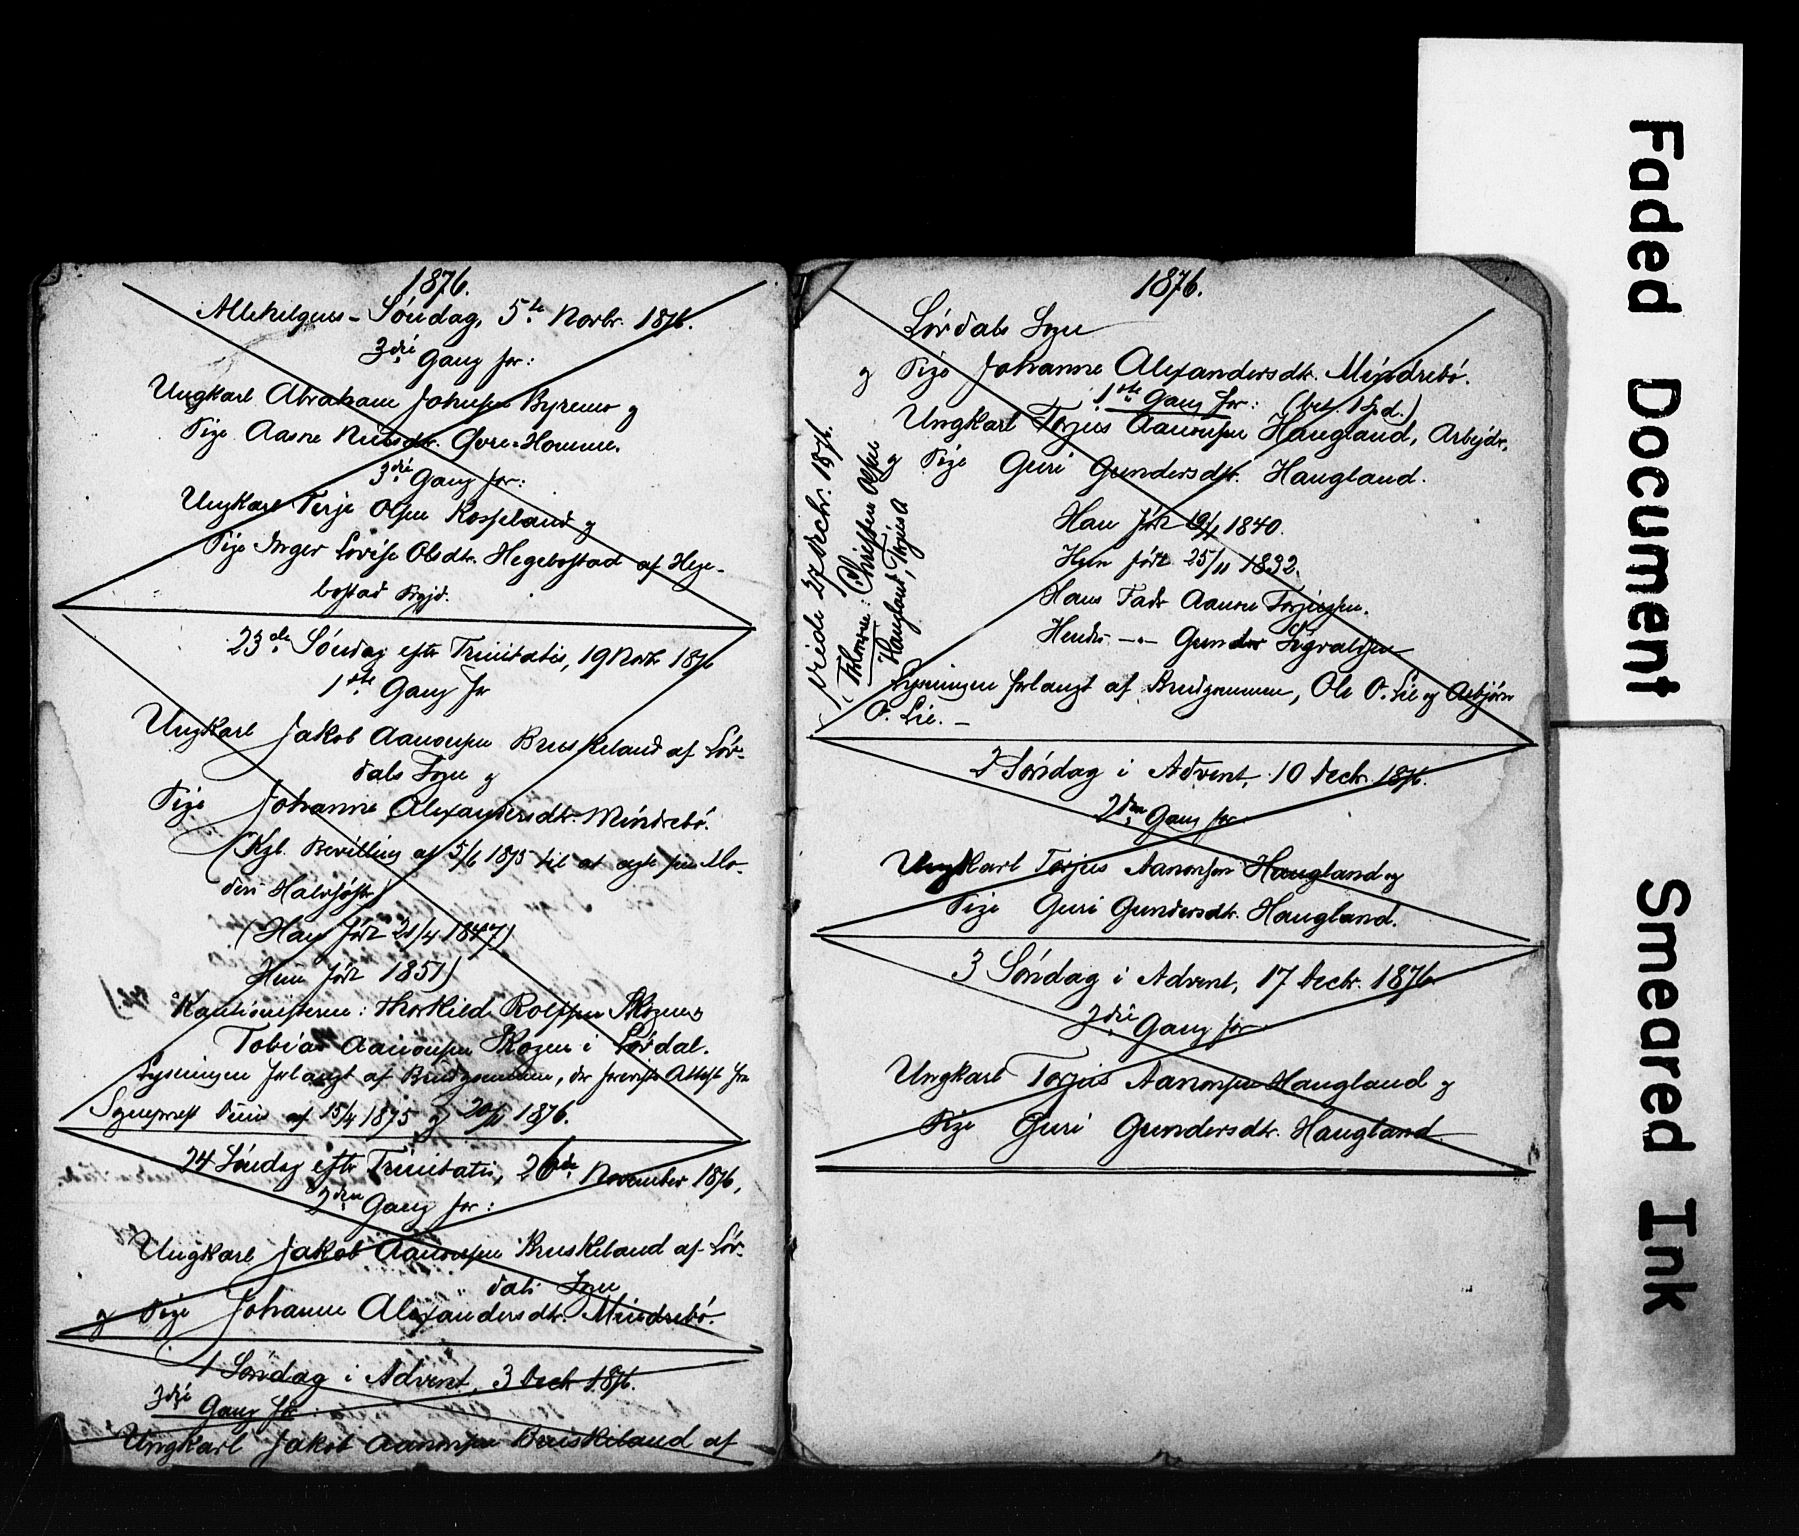 1876.
Allehelgens-Søndag, 5te Novbr. 1876.
3die Gang for:
Ungkarl Abraham Johnsen Byremo og
Pige Aasne Nilsdtr. Øvre-Homme.
3die Gang for:
Ungkarl Terje Olsen Kosseland og
Pige Inger Lovise Olsdtr. Hegebostad af Hege-
bostad Prgjd.
23de Søndag efter Trinitatis, 19 Novbr 1876
1ste Gang for
Ungkarl Jakob Aanonsen Bruskeland af Lør-
dals Sogn og
Pige Johanne Alexandersdtr. Mindrebø.
(Kgl. Bevilling af 5/6 1875 til at ægte sin Mo-
ders Halvsøster)
(Han født 21/4 1847)
Hun født 1851)
Kautionisterne: Thorkild Rolfsen Skogen og
Tobias Aanonsen Skogen i Lørdal.
Lysningen forlangt af Brudgommen, der foreviste Attest fra
Sognepræst af 15/4 1875 og 20/ 1876.
24 Søndag efter Trinitatis, 26de November 1876,
2den Gang for:
Ungkarl Jakob Aanonsen Bruskeland af Lør-
dals Sogn
og Pige Johanne Alexandersdtr. Mindrebø.
1 Søndag i Advent, 3 Decbr 1876.
3die Gang for:
Ungkarl Jakob Aanonsen Bruskeland af
1876.
Lørdals Sogn
og Pige Johanne Alexandersdtr. Mindrebø.
1ste Gang for: (bet. 1 Spd.)
Ungkarl Torjus Aanonsen Haugland, Arbejdr.
og Pige Guri Gundersdtr. Haugland.
Han født 1840.
Hun født 25/11 1832.
Hans Fader Aanon Torjussen.
Hendes -"- Gunder Sigvaldsen
Lysningen forlangt af Brudgommen, Ole O. Lie og Asbjørn
O. Lie. -
viede 27 Decbr. 1876.
(Forlovere: Christen Olsen
Haugland, Torjus A
2 Søndag i Advent, 10 Decbr. 1876.
2den Gang for
Ungkarl Torjus Aanonsen Haugland og
Pige Guri Gundersdtr. Haugland.
3 Søndag i Advent, 17 Decbr. 1876.
3die Gang for
Ungkarl Torjus Aanonsen Haugland og
Pige Guri Gundersdtr. Haugland.
Faded Document
Smeared Ink